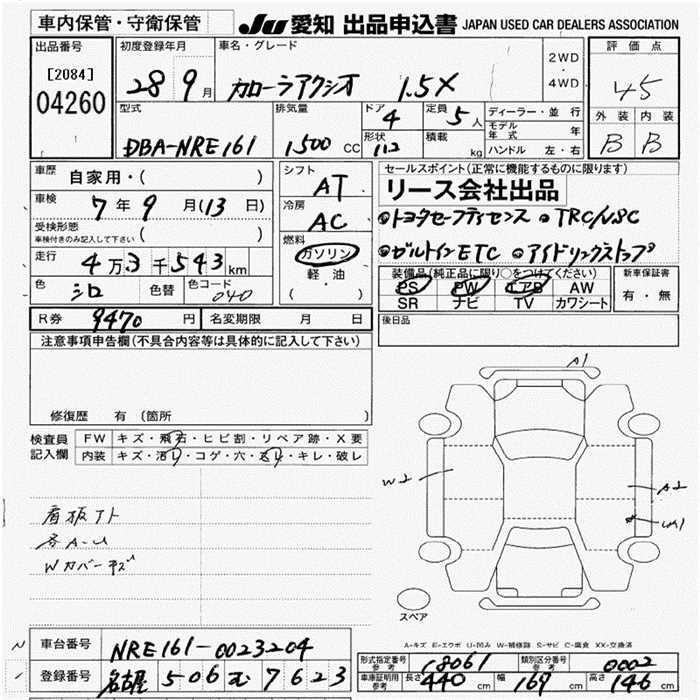 車内保管・守衛保管 JU 愛知 出品申込書 JAPAN USED CAR DEALERS ASSOCIATION
出品番号 初度登録年月 車名・グレード 2WD・4WD 評価点
[2084] 28 9月 カローラアクシオ 1.5X 45
04260
型式 排気量 ドア 4 定員 5人 ディーラー・並行 外装 内装
モデル年式 年
DBA-NRE161 1500 CC 形状 112 積載 kg ハンドル 左・右 B B
車歴 自家用・( ) シフト AT セールスポイント(正常に機能するものに限ります)
リース会社出品
車検 7年 9月(13日) 冷房 AC
●トヨタセーフティセンス ●TRC/VSC
受検形態 ( )
車検付きのみ記入して下さい
燃料 ガソリン 軽油 ( )
●ビルトインETC ●アイドリングストップ
走行 4万3千543km
装備品(純正品に限り○をつけてください) 新車保証書
色 シロ 色替 色コード 040
PS PW エアB AW 有・無
SR ナビ TV カワシート
R券 9470円 名変期限 月 日 後日品
注意事項申告欄(不具合内容等は具体的に記入して下さい)
修復歴 有 (箇所
検査員記入欄 FW キズ・飛石・ヒビ割・リペア跡・X要
内装 キズ・汚レ・コゲ・穴・スレ・キレ・破レ
A1
W2
A2
UA1
看板アト
各A-U
Wカバーキズ
スペア
A=キズ E=エクボ U=凹み W=補修跡 S=サビ C=腐食 XX=交換済
車台番号 NRE161-0023204
形式指定番号 参考 18061 類別区分番号 参考 0002
登録番号 名古屋 506 む 7623
車庫証明用 参考 長さ 440cm 幅 169cm 高さ 146cm